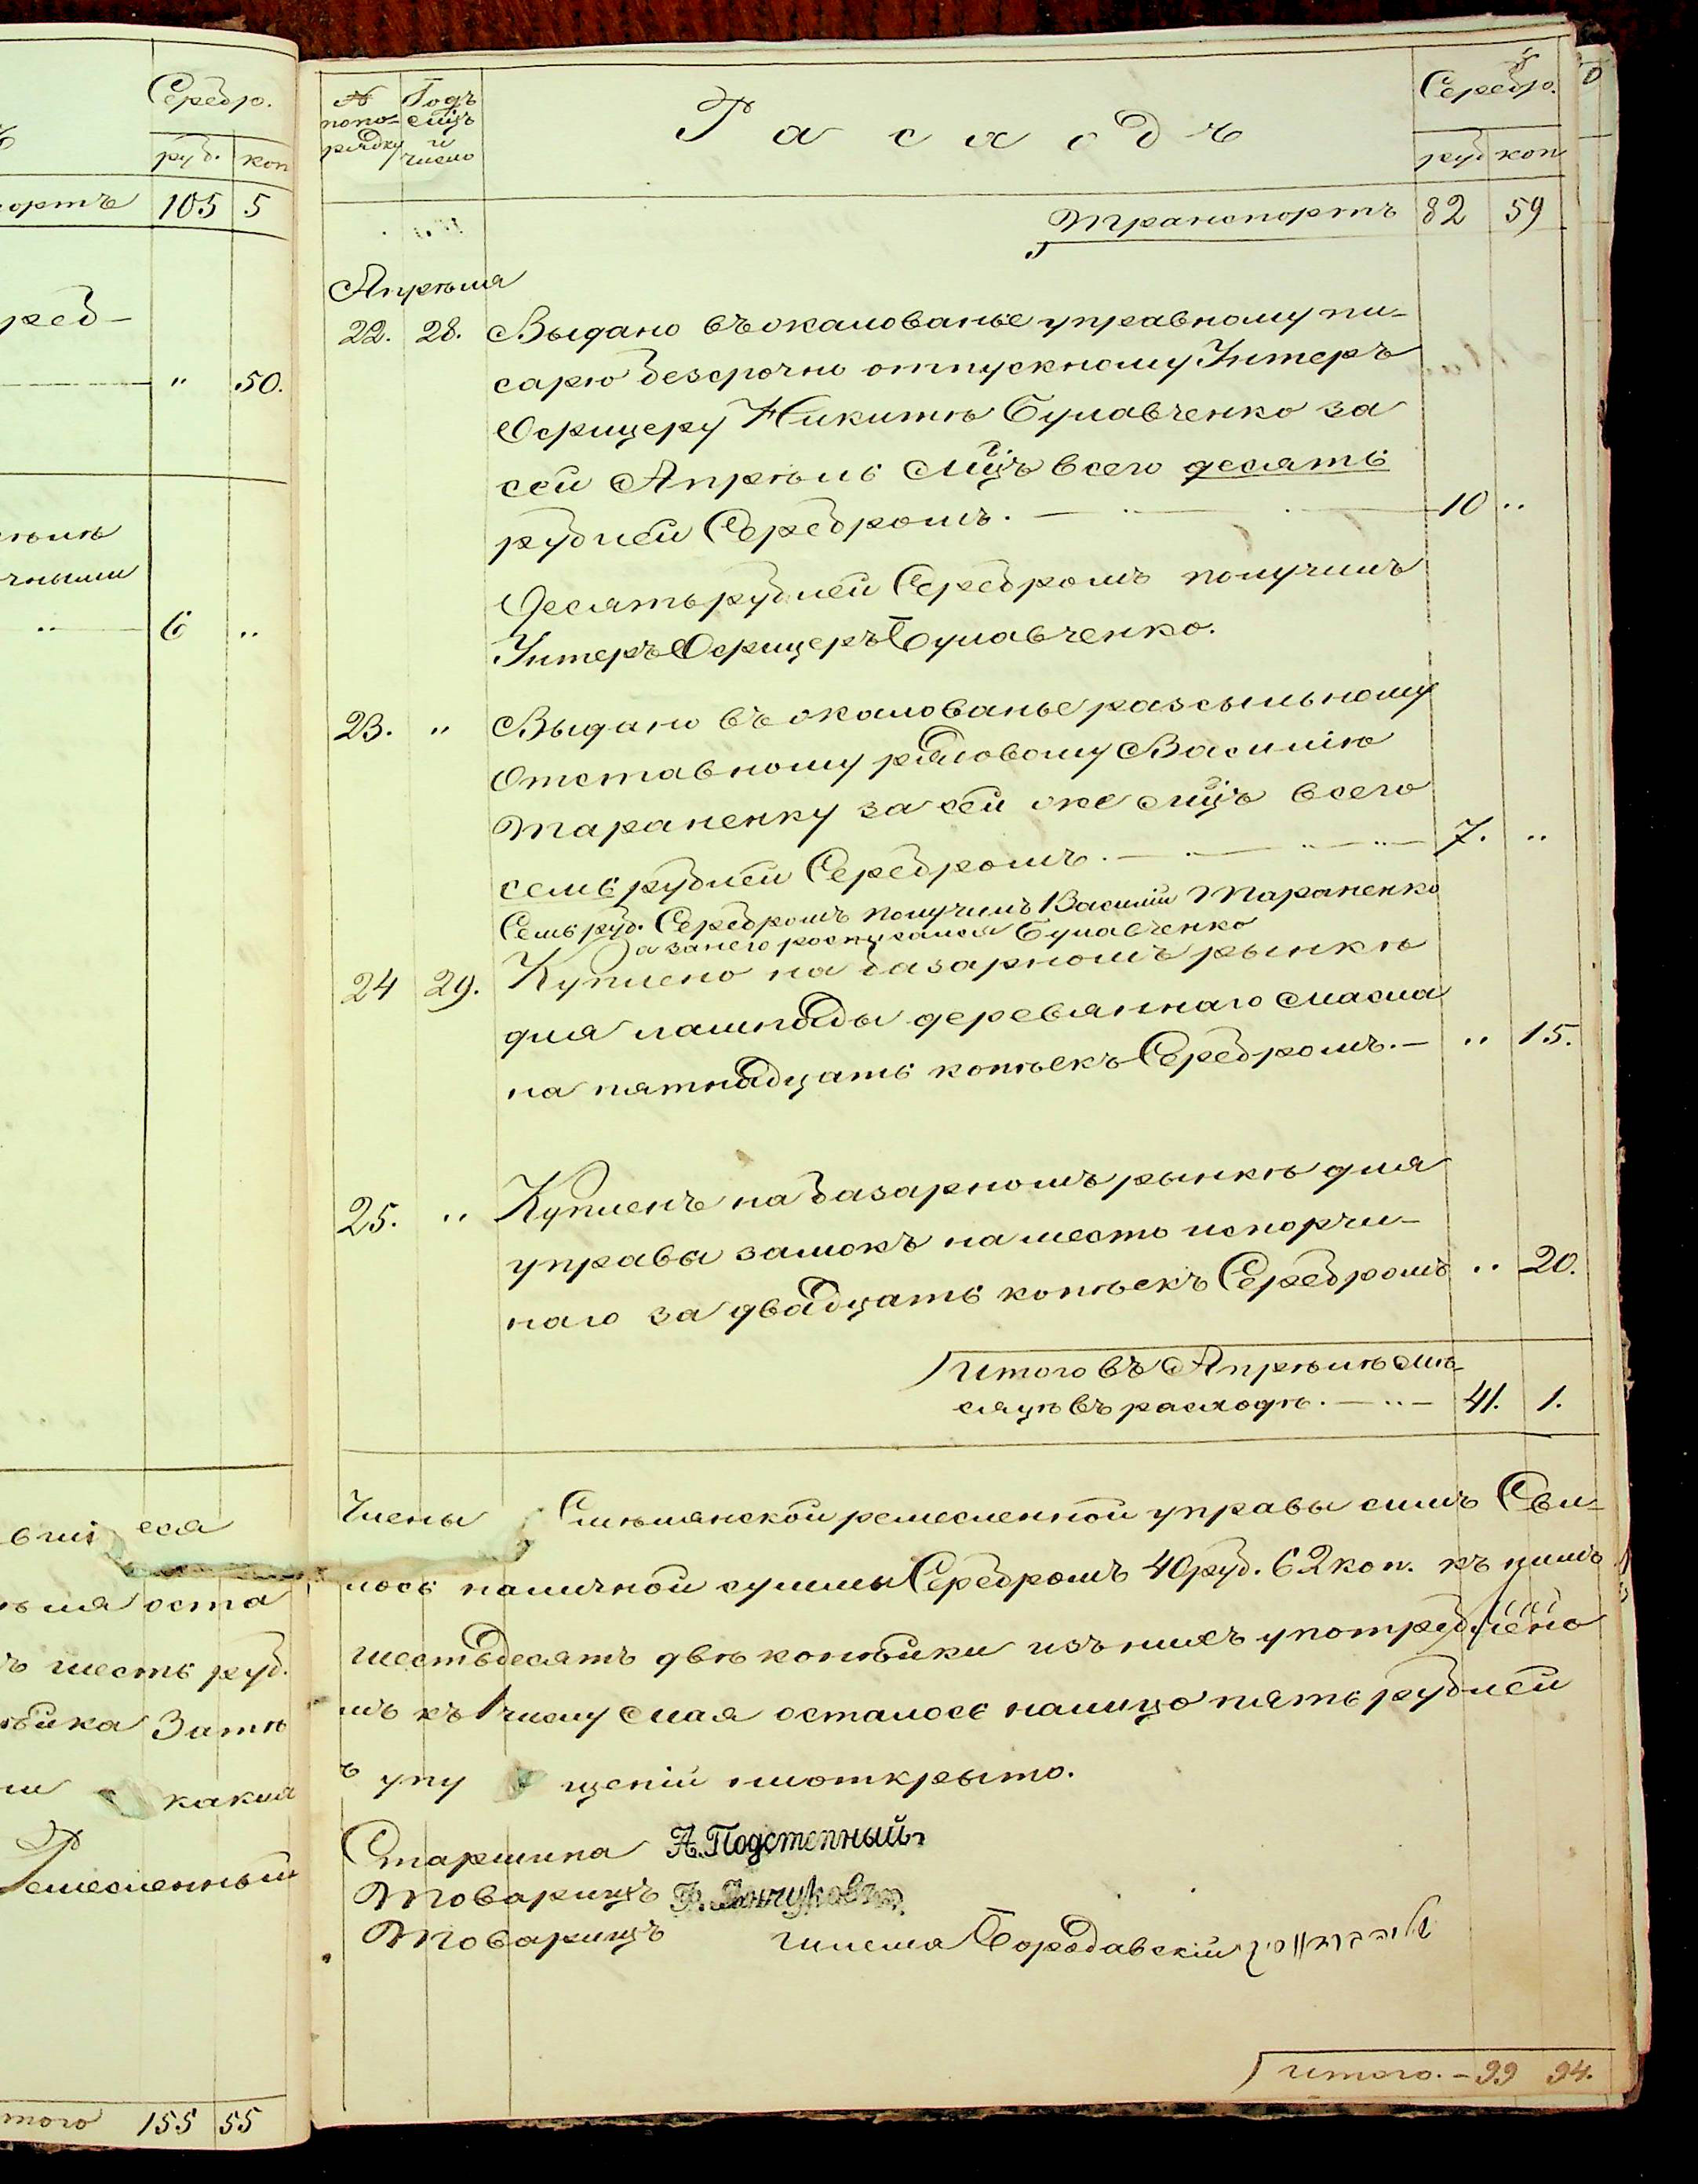 Серебро.
руб. коп
ортъ 105 5
реб-
" 50.
ѣлѣ
чными
6 "
вші еся
ѣля оста
ъ шесть руб.
ѣйка Затѣ
какия
Ремесленный
того 155 55
№ попо- рядку
Годъ м̃цъ и число
Расходъ
Серебро.
руб коп
Транспортъ 82 59
Апрѣля
22. 28. Выдано въ жалованье управному пи-
сарю безсрочно отпускному Унтеръ
Офицеру Никитѣ Булавченко за
сей Апрѣль м̃цъ всего десять
рублей Серебромъ. 10 "
Десять рублей Серебромъ получилъ
Унтеръ Офицеръ Булавченко.
23. " Выдано въ жалованье разсыльному
Отставному рядовому Василію
Тараненку за сей же м̃цъ всего
семь рублей Серебромъ. 7. "
Семь руб. Серебромъ получилъ Василій Тараненко
а занего роспусался Булавченко
24 29. Куплено на базарномъ рынкѣ
для лампады деревяннаго масла
на пятнадцать копѣекъ Серебромъ. " 15.
25. " Купленъ на базарномъ рынкѣ для
управы замокъ на место испорчи-
наго за двадцать копѣекъ Серебромъ " 20.
Итого въ Апрѣлѣ мѣ-
сяцѣ въ расходѣ. 41. 1.
Члены ремесленной управы симъ Сви-
лось наличной суммы Серебромъ 40 руб. 62 коп. къ нимъ
шестьдесятъ двѣ копѣйки изъ нихъ употреблено
мъ къ 1 числу мая осталось налицо пять рублей
ъ упу щеній неоткрыто.
Старшина А. Подстепный
Товарищъ
Товарищъ Шлема Бородавскій
Итого. 99 94.